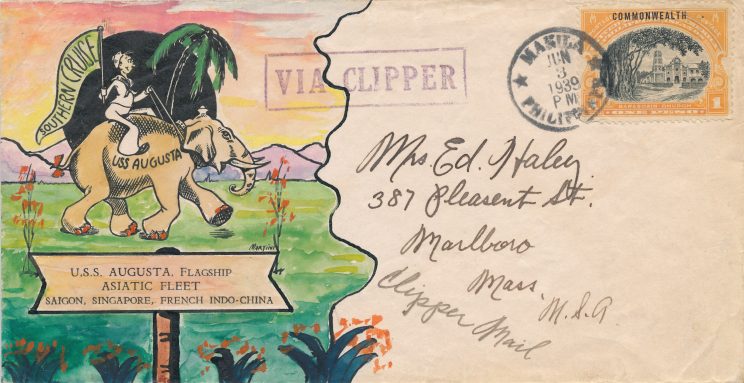 SOUTHERN CRUISE
USS AUGUSTA
MARTINI
U.S.S. AUGUSTA, FLAGSHIP
ASIATIC FLEET
SAIGON, SINGAPORE, FRENCH INDO-CHINA
VIA CLIPPER
MANILA
JUN
3
1939
PM
COMMONWEALTH
BARASOAIN CHURCH
1
Mrs. Ed. Haley
387 Pleasent St.
Marlboro
Mass.
U.S.A.
Clipper Mail